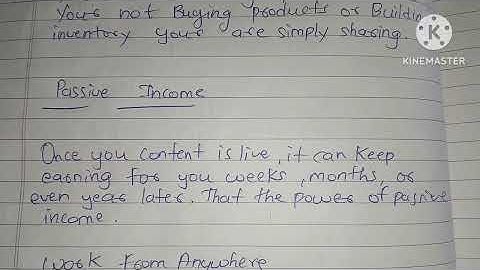 Your not Buying products or Buildin
inventory your are simply sharing.
KINEMASTER
Passive Income
Once you content is live, it can keep
earning for you weeks, months, or
even years later. That the power of passive
income.
Work from Anywhere